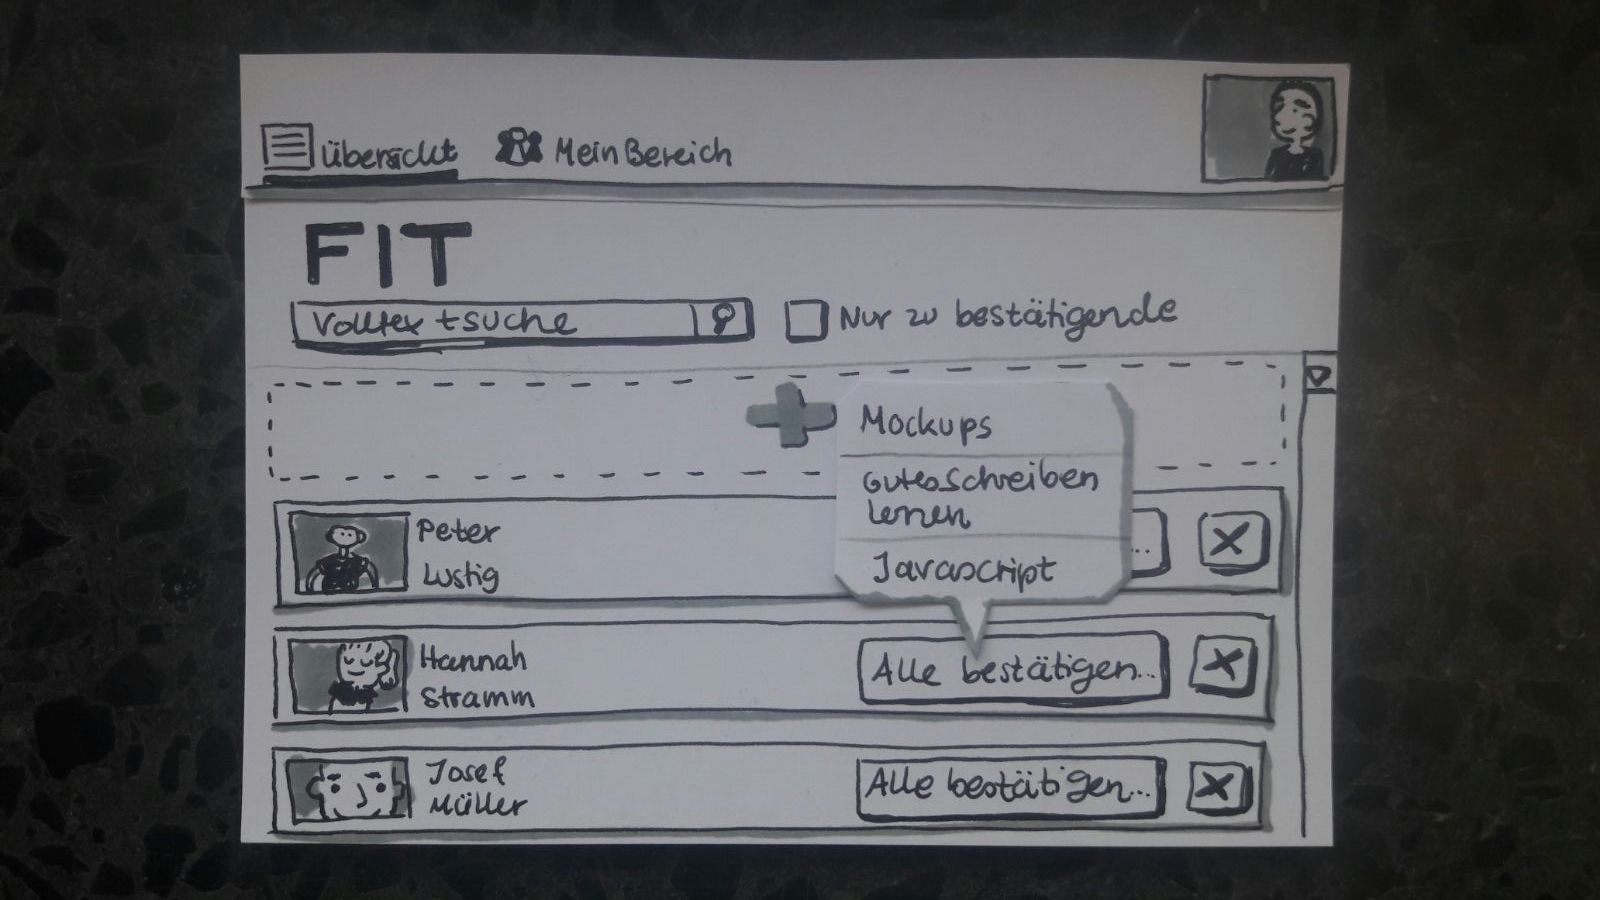 Übersicht
Mein Bereich
FIT
Volltextsuche
Nur zu bestätigende
Mockups
Gutes Schreiben
lernen
Javascript
Peter
Lustig
...
Hannah
Stramm
Alle bestätigen...
Josef
Müller
Alle bestätigen...